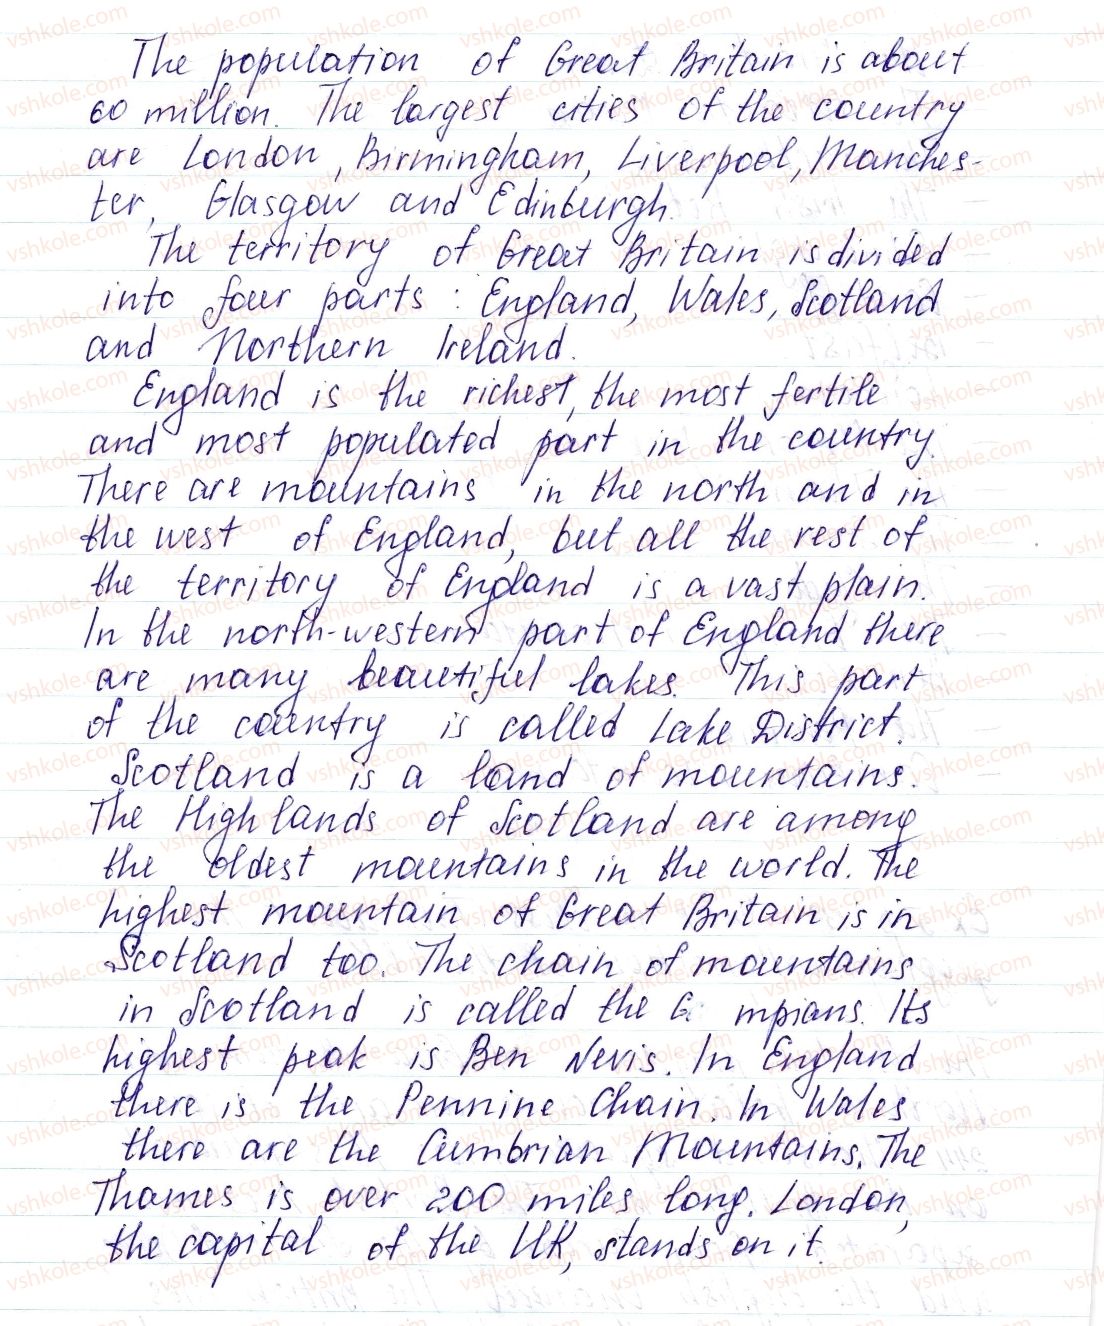 The population of Great Britain is about
60 million. The largest cities of the country
are London, Birmingham, Liverpool, Manches-
ter, Glasgow and Edinburgh.
The territory of Great Britain is divided
into four parts: England, Wales, Scotland
and Northern Ireland.
England is the richest, the most fertile
and most populated part in the country.
There are mountains in the north and in
the west of England, but all the rest of
the territory of England is a vast plain.
In the north-western part of England there
are many beautiful lakes. This part
of the country is called Lake District.
Scotland is a land of mountains.
The Highlands of Scotland are among
the oldest mountains in the world. The
highest mountain of Great Britain is in
Scotland too. The chain of mountains
in Scotland is called the mpians. Its
highest peak is Ben Nevis. In England
there is the Pennine Chain. In Wales
there are the Cumbrian Mountains. The
Thames is over 200 miles long. London,
the capital of the UK, stands on it.